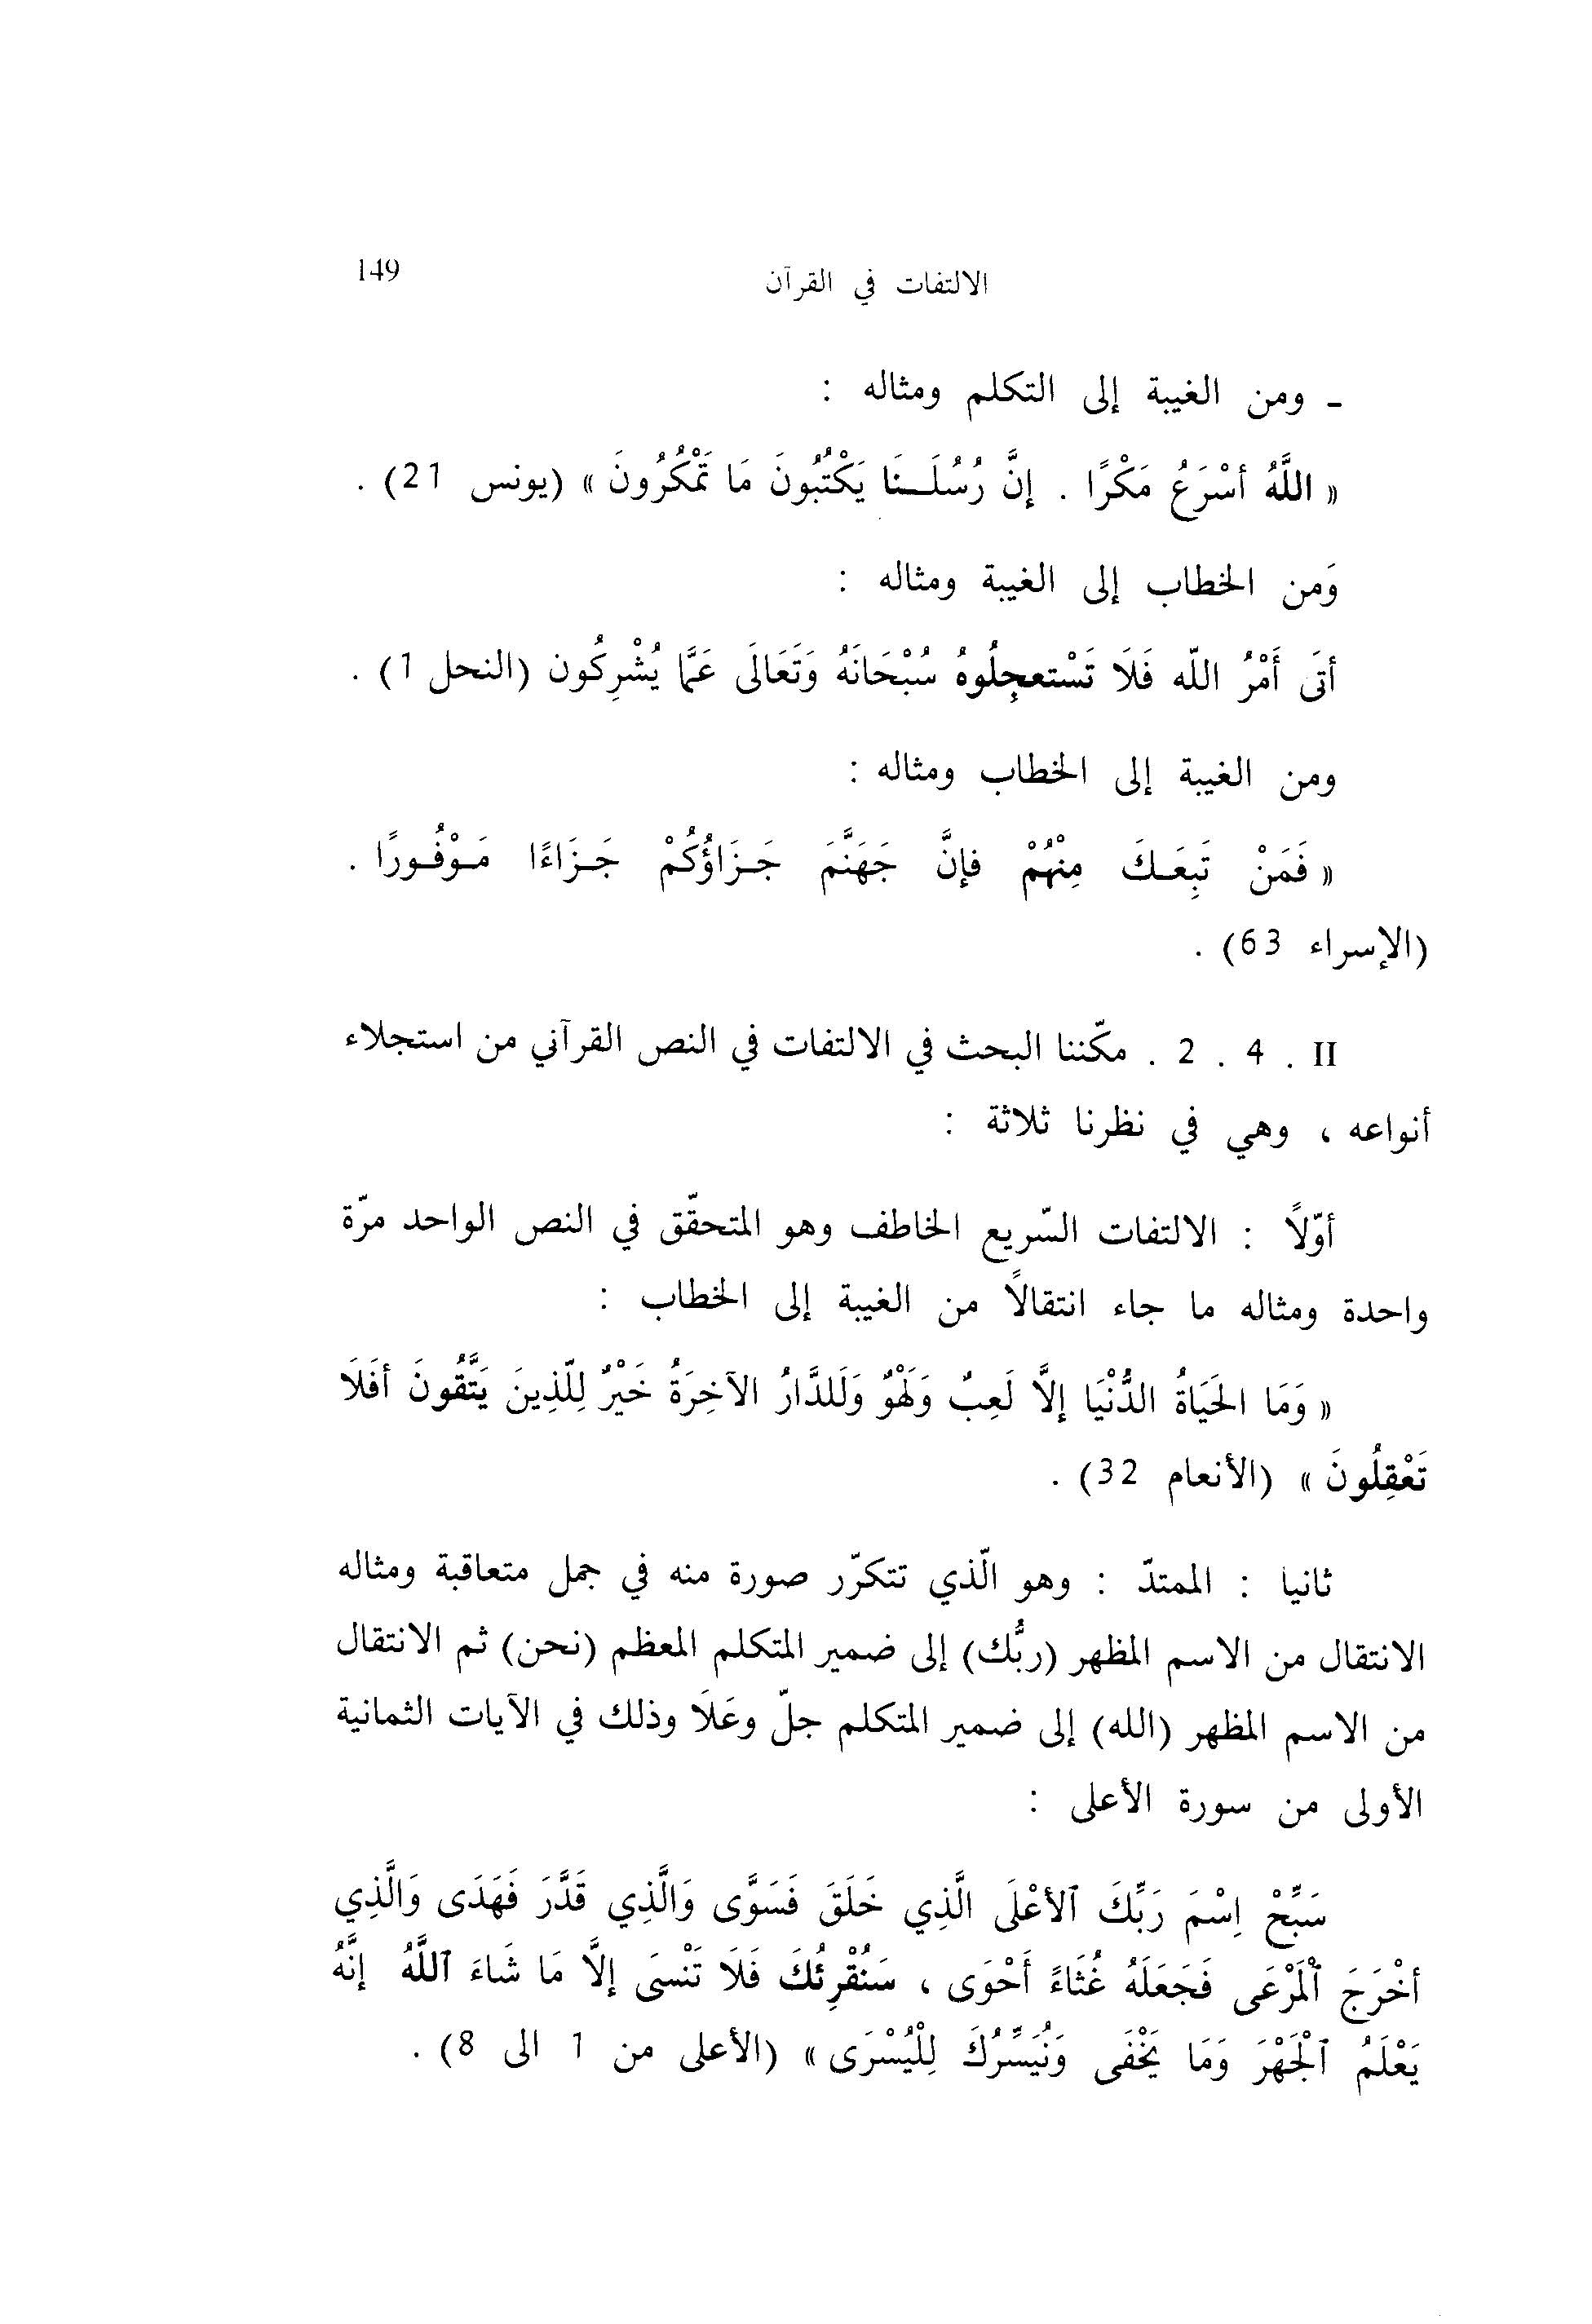 الالتفات في القرآن 149
ـ ومن الغيبة إلى التكلم ومثاله :
« اللَّهُ أسْرَعُ مَكْرًا . إنَّ رُسُلَــنَا يَكْتُبُونَ مَا تَمْكُرُونَ » (يونس 21) .
وَمن الخطاب إلى الغيبة ومثاله :
أتَى أَمْرُ اللّه فَلَا تَسْتعجِلُوهُ سُبْحَانَهُ وَتَعَالَى عَمَّا يُشْرِكُون (النحل 1) .
ومن الغيبة إلى الخطاب ومثاله :
« فَمَنْ تَبِعَـكَ مِنْهُمْ فإنَّ جَهَنَّمَ جَـزَاؤُكُمْ جَـزَاءًا مَـوْفُـورًا .
(الإسراء 63) .
II . 4 . 2 . مكّننا البحث في الالتفات في النص القرآني من استجلاء
أنواعه ، وهي في نظرنا ثلاثة :
أوّلًا : الالتفات السّريع الخاطف وهو المتحقّق في النص الواحد مرّة
واحدة ومثاله ما جاء انتقالًا من الغيبة إلى الخطاب :
« وَمَا الحَيَاةُ الدُّنْيَا إلَّا لَعِبٌ وَلَهْوٌ وَلَلدَّارُ الآخِرَةُ خَيْرٌ لِلّذِينَ يَتَّقُونَ أفَلَا
تَعْقِلُونَ » (الأنعام 32) .
ثانيا : الممتدّ : وهو الّذي تتكرّر صورة منه في جمل متعاقبة ومثاله
الانتقال من الاسم المظهر (ربُّك) إلى ضمير المتكلم المعظم (نحن) ثم الانتقال
من الاسم المظهر (الله) إلى ضمير المتكلم جلّ وعَلَا وذلك في الآيات الثمانية
الأولى من سورة الأعلى :
سَبِّحْ اِسْمَ رَبِّكَ ٱلأعْلَى الَّذِي خَلَقَ فَسَوَّى وَالَّذِي قَدَّرَ فَهَدَى وَالَّذِي
أخْرَجَ ٱلْمَرْعَى فَجَعَلَهُ غُثَاءً أَحْوَى ، سَنُقْرِئُكَ فَلَا تَنْسَى إلَّا مَا شَاءَ ٱللَّهُ إنَّهُ
يَعْلَمُ ٱلْجَهْرَ وَمَا يَخْفَى وَنُيَسِّرُكَ لِلْيُسْرَى » (الأعلى من 1 الى 8) .